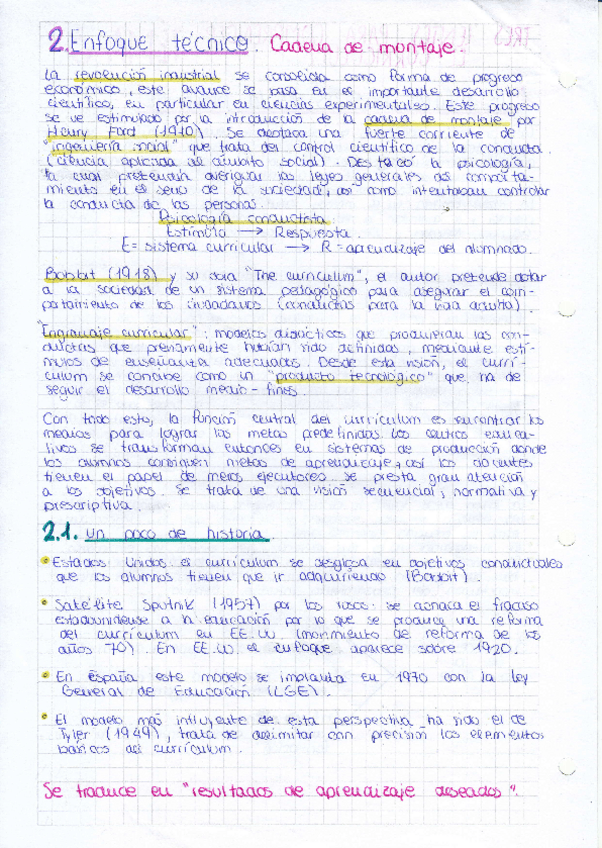 2. Enfoque técnico. Cadena de montaje.
La revolución industrial se consolida como forma de progreso
económico, este avance se basa en el importante desarrollo
científico, en particular en ciencias experimentales. Este progreso
se ve estimulado por la introducción de la cadena de montaje por
Henry Ford (1910). Se destaca una fuerte corriente de
"ingeniería social" que trata del control científico de la conducta
(ciencia aplicada al ámbito social). Destacó la psicología,
la cual pretendía averiguar las leyes generales del comporta-
miento en el seno de la sociedad, así como intentaban controlar
la conducta de las personas.
Psicología conductista
Estímulo → Respuesta.
E = sistema curricular → R = aprendizaje del alumnado.
Bobbit (1918) y su obra "The curriculum", el autor pretende dotar
a la sociedad de un sistema pedagógico para asegurar el com-
portamiento de los ciudadanos (conductas para la vida adulta).
"Engranaje curricular": modelos didácticos que produjeran las con-
ductas que previamente habían sido definidas, mediante estí-
mulos de enseñanza adecuados. Desde esta visión, el currí-
culum se concibe como un "producto tecnológico" que ha de
seguir el desarrollo medio-fines.
Con todo esto, la función central del currículum es encontrar los
medios para lograr las metas predefinidas. Los centros educa-
tivos se transforman entonces en sistemas de producción donde
los alumnos consiguen metas de aprendizaje, así los docentes
tienen el papel de meros ejecutores. Se presta gran atención
a los objetivos. Se trata de una visión secuencial, normativa y
prescriptiva.
2.1. Un poco de historia.
• Estados Unidos: el currículum se desglosa en objetivos conductuales
que los alumnos tienen que ir adquiriendo (Bobbit).
• Satélite Sputnik (1957) por los rusos: se achaca el fracaso
estadounidense a la educación por lo que se produce una reforma
del currículum en EE.UU (movimiento de reforma de los
años 70). En EE.UU el enfoque aparece sobre 1920.
• En España este modelo se implanta en 1970 con la Ley
General de Educación (LGE).
• El modelo más influyente de esta perspectiva ha sido el de
Tyler (1949), trata de delimitar con precisión los elementos
básicos del currículum.
Se traduce en "resultados de aprendizaje deseados".